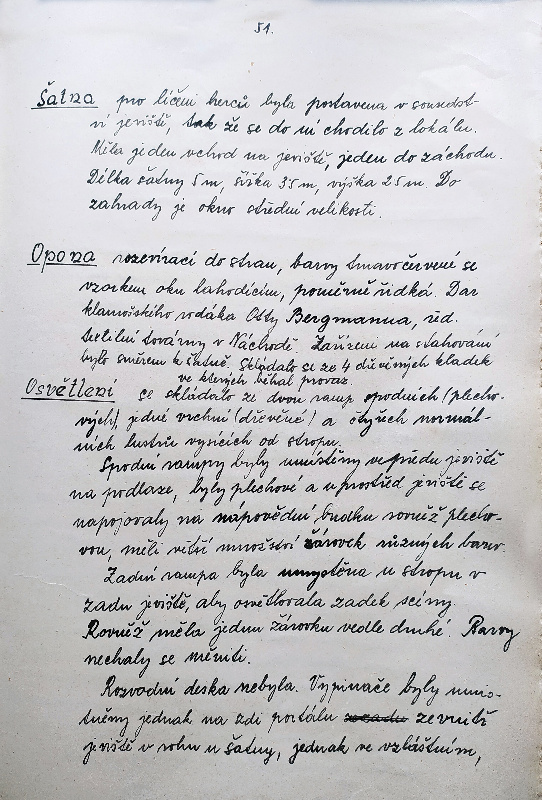 51.
Šatna pro líčení herců byla postavena v sousedst-
ví jeviště, tak že se do ní chodilo z lokálu.
Měla jeden vchod na jeviště, jeden do záchodu.
Délka šatny 5 m, šířka 3 5 m, výška 2 5 m. Do
zahrady je okno střední velikosti.
Opona rozevírací do stran, barvy tmavočervené se
vzorkem oku lahodícím, poměrně řídká. Dar
klamošského rodáka Otty Bergmanna, řid.
textilní továrny v Náchodě. Zařízení na stahování
bylo směrem k šatně. Skládalo se ze 4 dřevěných kladek
ve kterých běhal provaz.
Osvětlení se skládalo ze dvou ramp spodních (plecho-
vých), jedné vrchní (dřevěné) a čtyřech normál-
ních lustrů visících od stropu.
Spodní rampy byly umístěny vepředu jeviště
na podlaze, byly plechové a uprostřed jeviště se
napojovaly na nápovědní budku rovněž plecho-
vou, měli větší množství žárovek různých barev.
Zadní rampa byla umystěna u stropu v
zadu jeviště, aby osvětlovala zadek scény.
Rovněž měla jednu žárovku vedle druhé. Barvy
nechaly se měniti.
Rozvodní deska nebyla. Vypinače byly umís-
těny jednak na zdi portálu zezadu zevnitř
jeviště v rohu u šatny, jednak ve vzláštním,